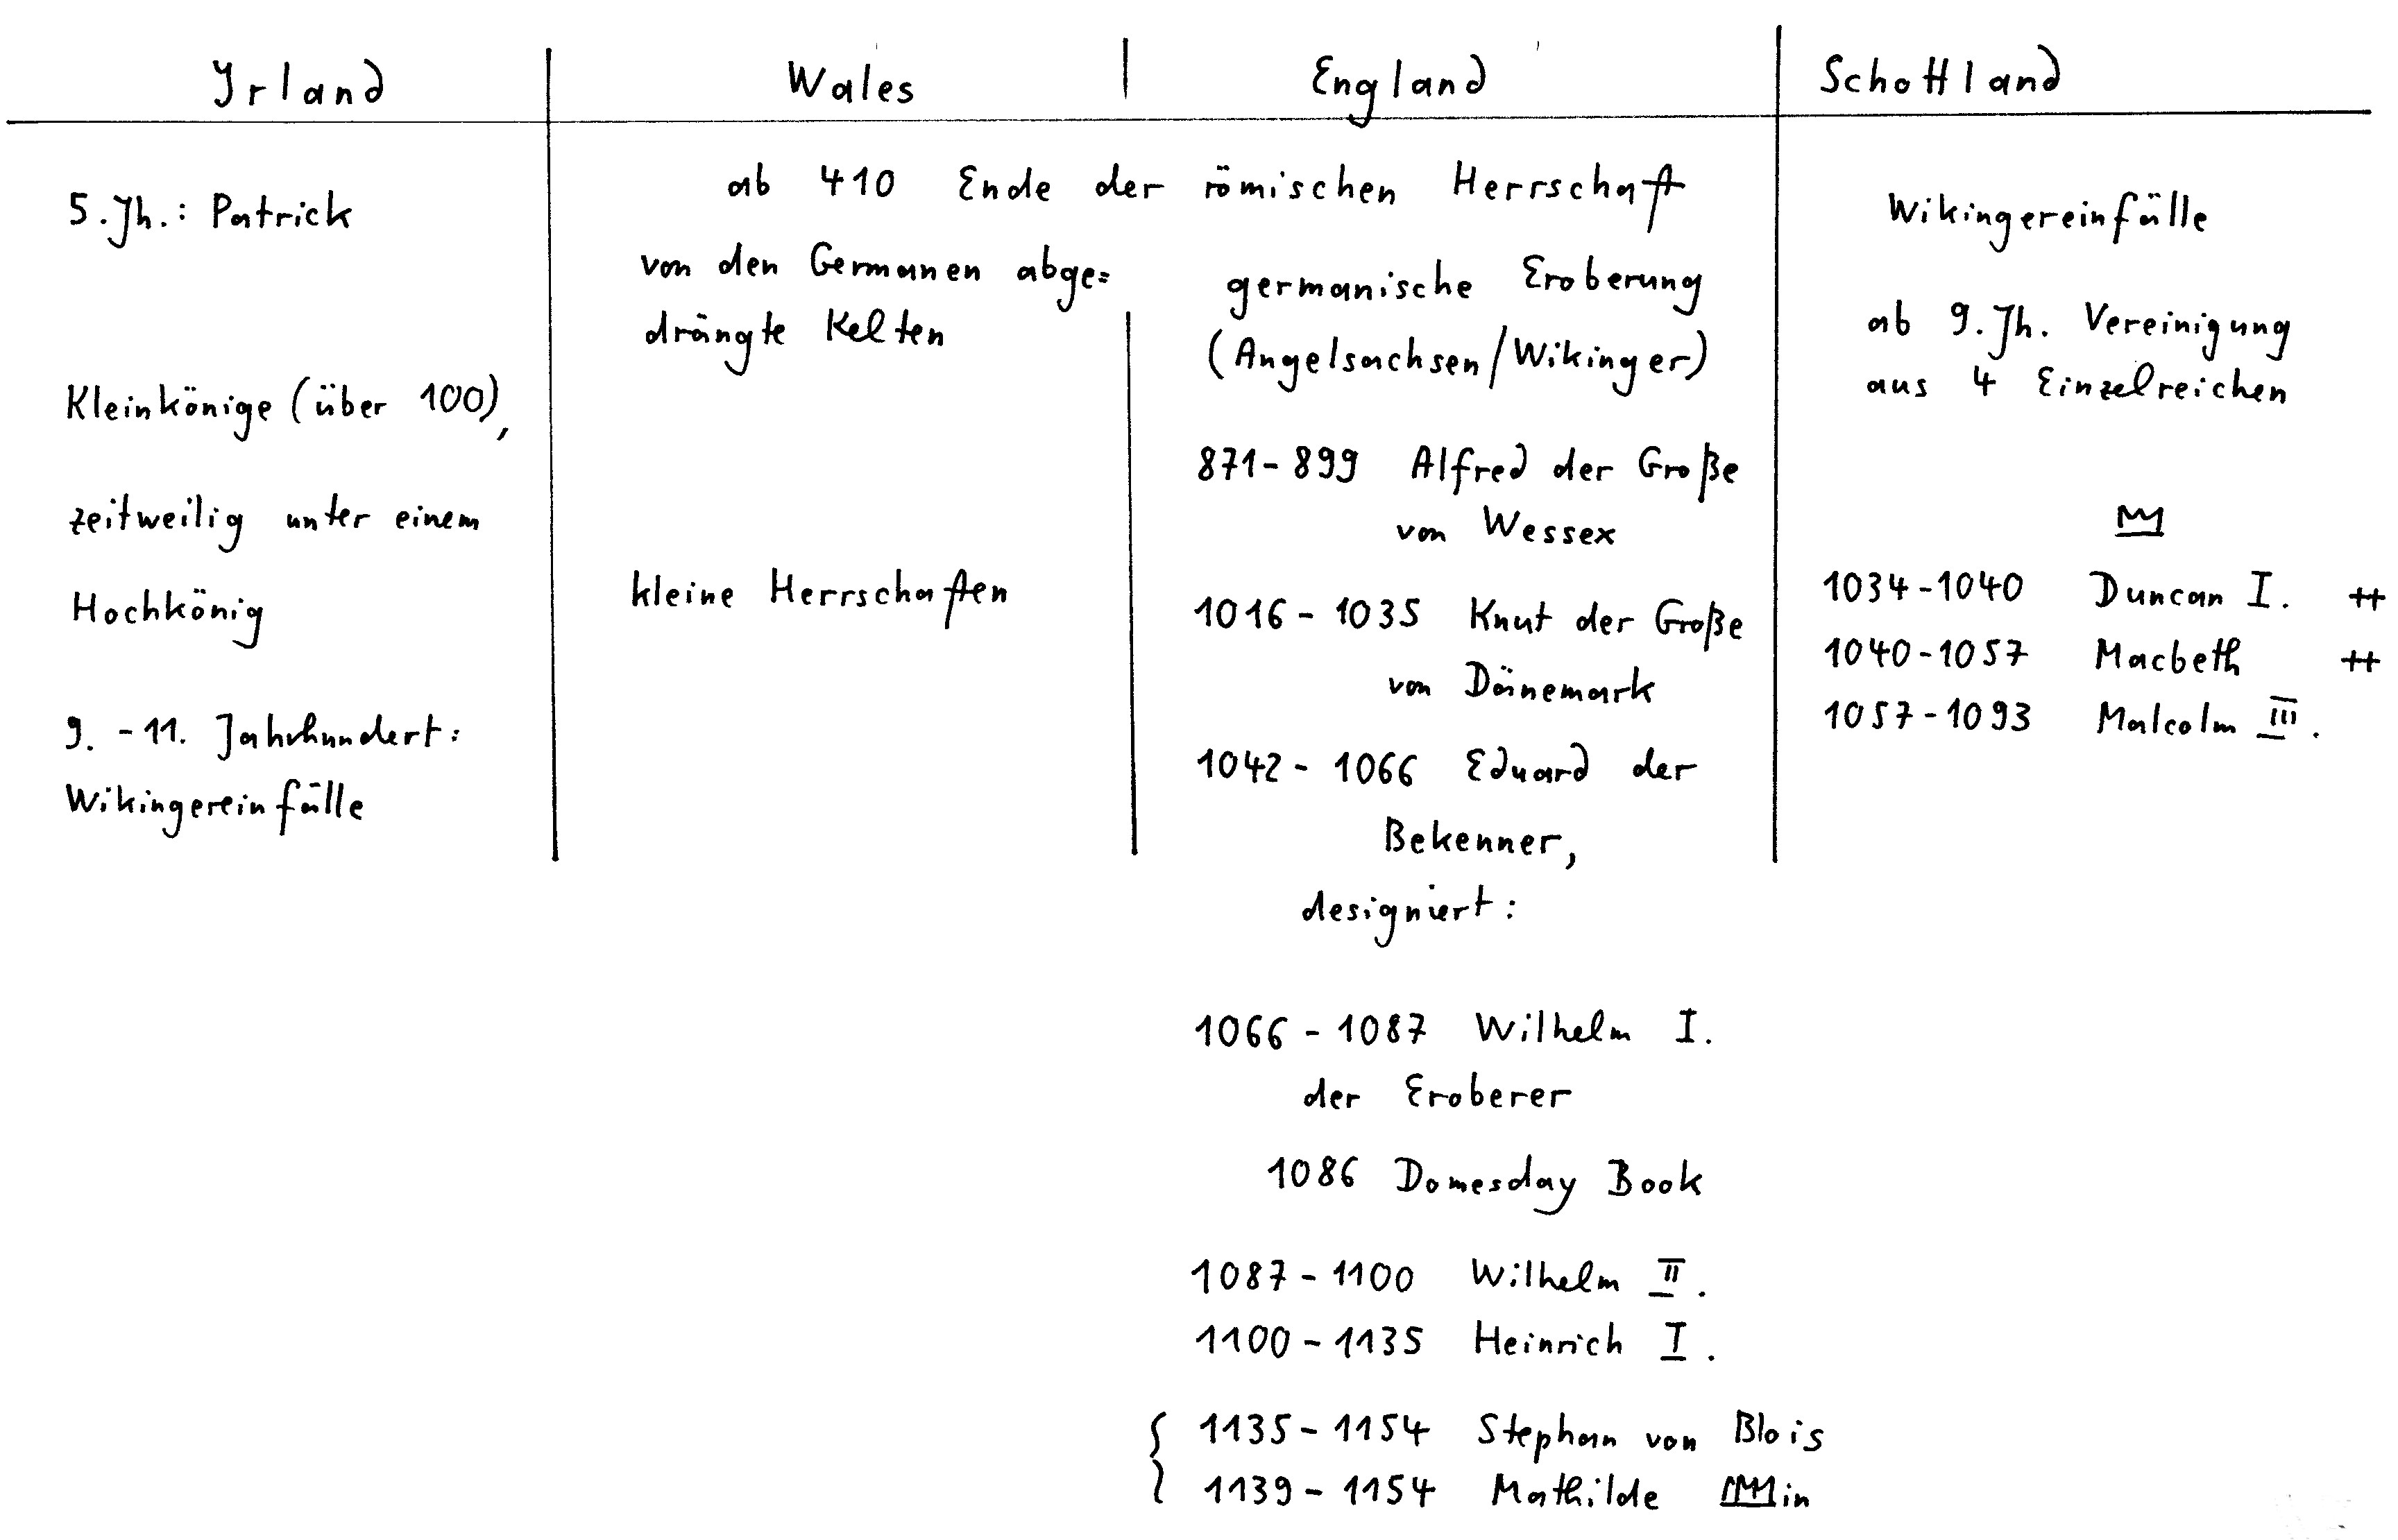 Irland
Wales
England
Schottland
5. Jh.: Patrick
Kleinkönige (über 100),
zeitweilig unter einem
Hochkönig
9. - 11. Jahrhundert:
Wikingereinfälle
ab 410 Ende der römischen Herrschaft
von den Germanen abge=
drängte Kelten
kleine Herrschaften
germanische Eroberung
(Angelsachsen/Wikinger)
871 - 899 Alfred der Große
von Wessex
1016 - 1035 Knut der Große
von Dänemark
1042 - 1066 Eduard der
Bekenner,
designiert:
1066 - 1087 Wilhelm I.
der Eroberer
1086 Domesday Book
1087 - 1100 Wilhelm II.
1100 - 1135 Heinrich I.
1135 - 1154 Stephan von Blois
1139 - 1154 Mathilde in
Wikingereinfälle
ab 9. Jh. Vereinigung
aus 4 Einzelreichen
1034 - 1040 Duncan I. ++
1040 - 1057 Macbeth ++
1057 - 1093 Malcolm III.